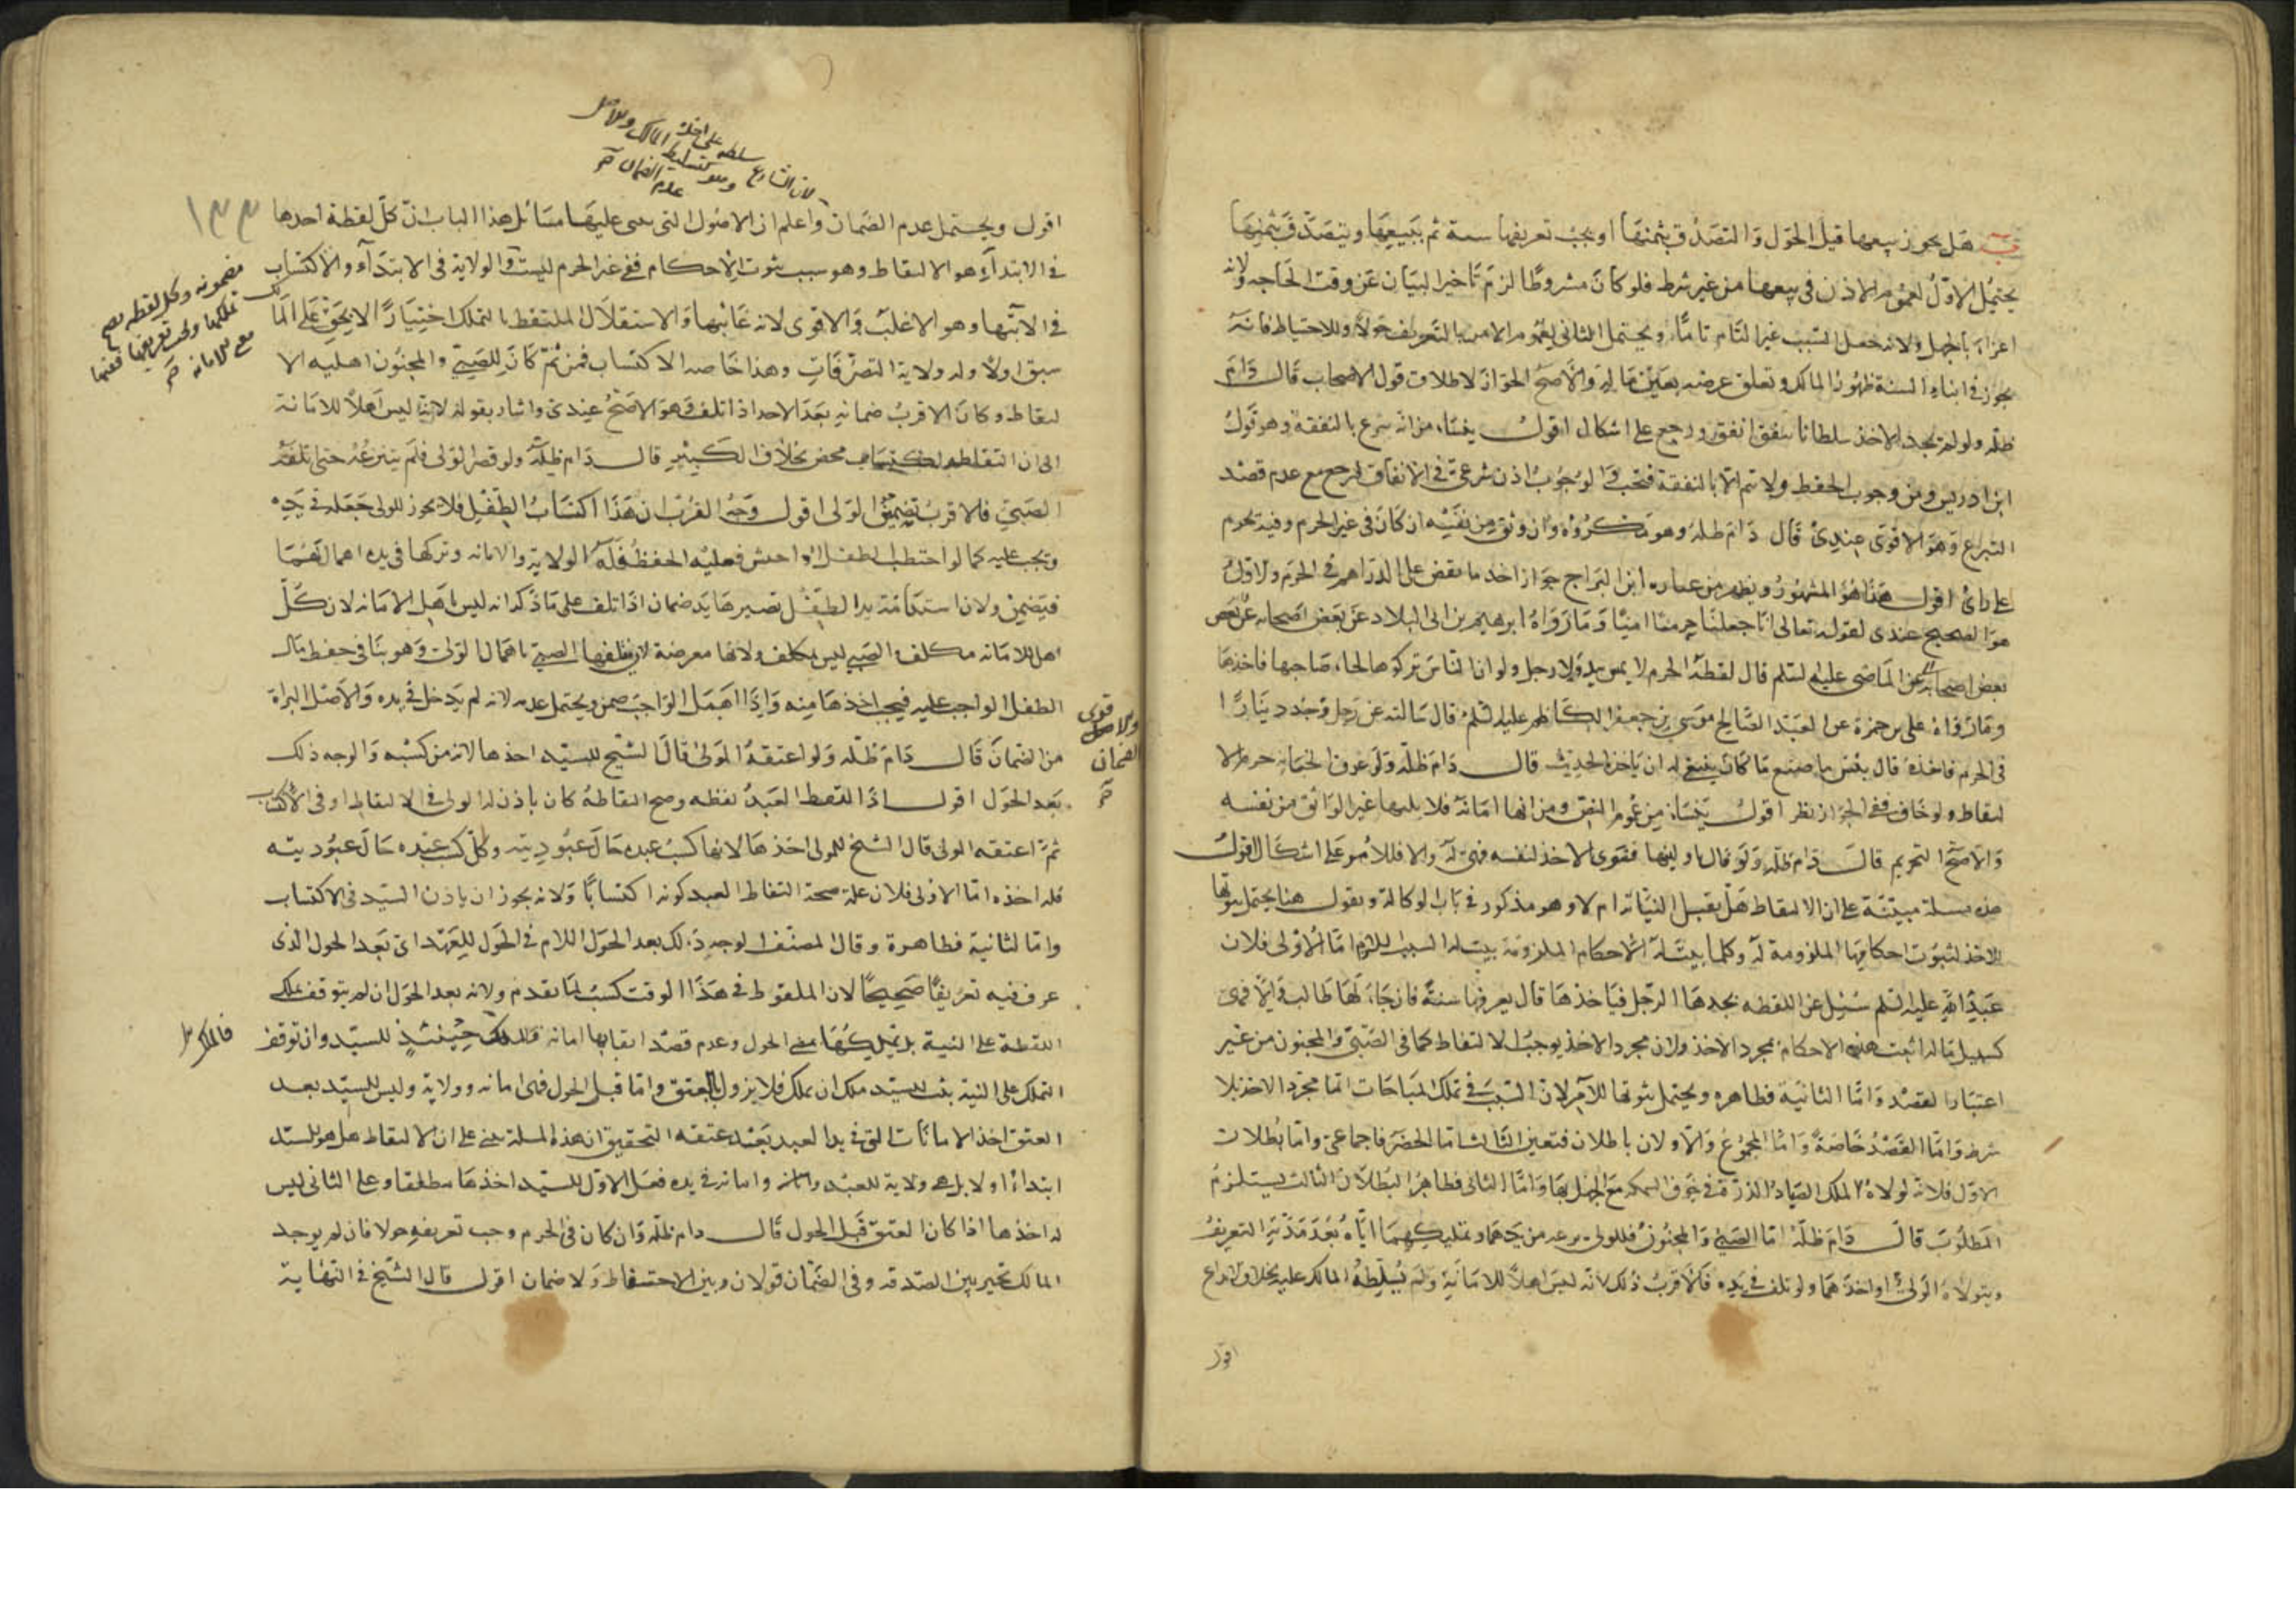 هل يجوز بيعها قبل الحول والتصدق بثمنها او يجب تعريفها سنة ثم يبيعها ويتصدق بثمنها
يحتمل الاول لعموم الاذن في بيعها من غير شرط فلو كان مشروطا لزم تاخير البيان عن وقت الحاجه ولانه
اغراء بالجهل ولانه جعل السبب غير التام تاما ويحتمل الثاني لعموم الامر بالتعريف حولا وللاحتياط فانه
يجوز في اثناء السنة ظهور المالك وتعلق غرضه بعين ماله والاصح الجواز لاطلاق قول الاصحاب قال دام
ظله ولو لم يجد الاخذ سلطانا ينفق انفق ورجع على اشكال اقول ينشا من انه تبرع بالنفقة وهو قول
ابن ادريس ومن وجوب الحفظ ولا يتم الا بالنفقة فتجب والوجوب اذن شرعي في الانفاق فيرجع مع عدم قصد
التبرع وهو الاقوى عندي قال دام ظله وهو مكروه وان وثق من نفسه ان كان في غير الحرم وفيه يحرم
على راي اقول هذا هو المشهور ويظهر من عباره ابن البراج جواز اخذ ما نقص على الدراهم في الحرم والاول
هو الصحيح عندي لقوله تعالى انا جعلنا حرما امنا وما رواه ابرهيم بن ابي البلاد عن بعض اصحابه عن بعض
بعض اصحابه عن الماضي عليه السلم قال لقطة الحرم لا يمس بيد ولا رجل ولو ان الناس تركوها لجاء صاحبها فاخذها
وما رواه علي بن حمزة عن العبد الصالح موسى بن جعفر الكاظم عليه السلم قال سالته عن رجل وجد دينارا
في الحرم فاخذه قال بئس ما صنع ما كان ينبغي له ان ياخذ الحديث قال دام ظله ولو عرف الخيانه حرم الا
لتقاط ولو خاف ففي الجواز نظر اقول ينشا من عموم النص ومن انها امانة فلا يليها غير الواثق من نفسه
والاصح التحريم قال دام ظله ولو قال ناولنيها فنوى الاخذ لنفسه فهي له والا فللامر على اشكال اقول
هذه مسئلة مبينة على ان الالتقاط هل يقبل النيابة ام لا وهو مذكور في باب الوكالة ونقول هنا يحتمل ثبوتها
للاخذ لثبوت احكامها الملزومة له وكلما يثبت له الاحكام الملزومة يثبت له السبب اللازم اما الاولى فلان
عبد الله عليه السلم سئل عن اللقطه يجدها الرجل فياخذها قال يعرفها سنة فان جاء لها طالب والا فهي
كسبيل ماله اثبت هذه الاحكام بمجرد الاخذ ولان مجرد الاخذ يوجب الالتقاط كما في الصبي والمجنون من غير
اعتبار القصد واما الثانية فظاهره ويحتمل ثبوتها للآمر لان السبب في تملك المباحات اما مجرد الاخذ بلا
شرط واما القصد خاصة واما المجموع والاولان باطلان فتعين الثالث اما الحصر فاجماعي واما بطلان
الاول فلانه لولاه لملك الصياد الدرة في جوف السمكه مع الجهل بها واما الثاني فظاهر البطلان الثالث يستلزم
المطلوب قال دام ظله اما الصبي والمجنون فللولي نزعه من يدهما وتمليكهما اياه بعد مدة التعريف
ويتولاه الولي او احدهما ولو تلف في يده فالاقرب ذلك لانه ليس اهلا للامانة ولم يسلطه المالك عليه بخلاف الايداع
اقول
لان الشارع سلطه على اخذه
وهو كتسليط المالك والاصل
عدم الضمان
١٣٣
اقول ويحتمل عدم الضمان واعلم ان الاصول التي يبنى عليها مسائل هذا الباب ان كل لقطة احدها
في الابتداء هو الالتقاط وهو سبب ثبوت الاحكام ففي غير الحرم ليست والولاية في الابتداء والاكتساب
في الانتهاء وهو الاغلب والاقوى لانه غايتها والاستقلال الملتقط بالتملك اختيارا لا بحق على الما
سبق اولا وله ولاية التصرفات وهذا خاصه الاكتساب فمن ثم كان للصبي والمجنون اهليه الا
لتقاط وكان الاقرب ضمانه بعد الاحد اذا تلف وهو الاصح عندي واشار بقوله لانه ليس اهلا للامانة
الى ان التقاطه اكتساب محض بخلاف الكبير قال دام ظله ولو قصر الولي فلم ينتزعه حتى تلفه
الصبي فالاقرب تضمين الولي اقول وجه القرب ان هذا اكتساب الطفل فلا يجوز للولي جعله في يده
ويجب عليه كما لو احتطب الطفل او احتش فعليه الحفظ فله الولاية والامانه وتركها في يده اهمال لهما
فيضمن ولان استدامة يد الطفل تصيرها يد ضمان اذا تلف على ما ذكر انه ليس باهل الامانه لان كل
اهل للامانه مكلف والصبي ليس بمكلف ولانها معرضة لان يتلفها الصبي باهمال الولي وهو ينافي حفظ مال
الطفل الواجب عليه فيجب اخذها منه واذا اهمل الواجب ضمن ويحتمل عدمه لانه لم يدخل في يده والاصل البراة
من الضمان قال دام ظله ولو اعتقه المولى قال الشيخ للسيد اخذها لانه من كسبه والوجه ذلك
بعد الحول اقول اذا التقط العبد لقطه وصح التقاطه كان باذن المولى في الالتقاط او في الاكتساب
ثم اعتقه المولى قال الشيخ للمولى اخذها لانها كسب عبده حال عبوديته وكل كسب عبده حال عبوديته
فله اخذه اما الاولى فلان علة صحة التقاط العبد كونه اكتسابا ولانه يجوز ان ياذن السيد في الاكتساب
واما الثانية فظاهرة وقال المصنف الوجه ذلك بعد الحول اللام في الحول للعهد اي بعد الحول الذي
عرف فيه تعريفا صحيحا لان الملقوط في هذا الوقت كسب لما تقدم ولانه بعد الحول ان لم يتوقف ملك
اللقطة على النية بل يملكها بمضي الحول وعدم قصد ابقائها امانه فالملك حينئذ للسيد وان توقف
التملك على النية يثبت للسيد ملك ان يملك فلا يزول بالعتق واما قبل الحول فهي امانه وولاية وليس للسيد بعد
العتق اخذ الامانات التي في يد العبد بعد عتقه التحقيق ان هذه المسئلة تبنى على ان الالتقاط هل هو للسيد
ابتداء او لا بل هي ولاية للعبد وامانة في يده فعلى الاول للسيد اخذها مطلقا وعلى الثاني ليس
له اخذها اذا كان العتق قبل الحول قال دام ظله وان كان في الحرم وجب تعريفه حولا فان لم يوجد
المالك تخير بين الصدقه وفي الضمان قولان وبين الاحتفاظ ولا ضمان اقول قال الشيخ في النهاية
مضمونه وكل لقطه يصح
تملكها
مع للامانه
قوى
والاصل
الضمان
فالملك